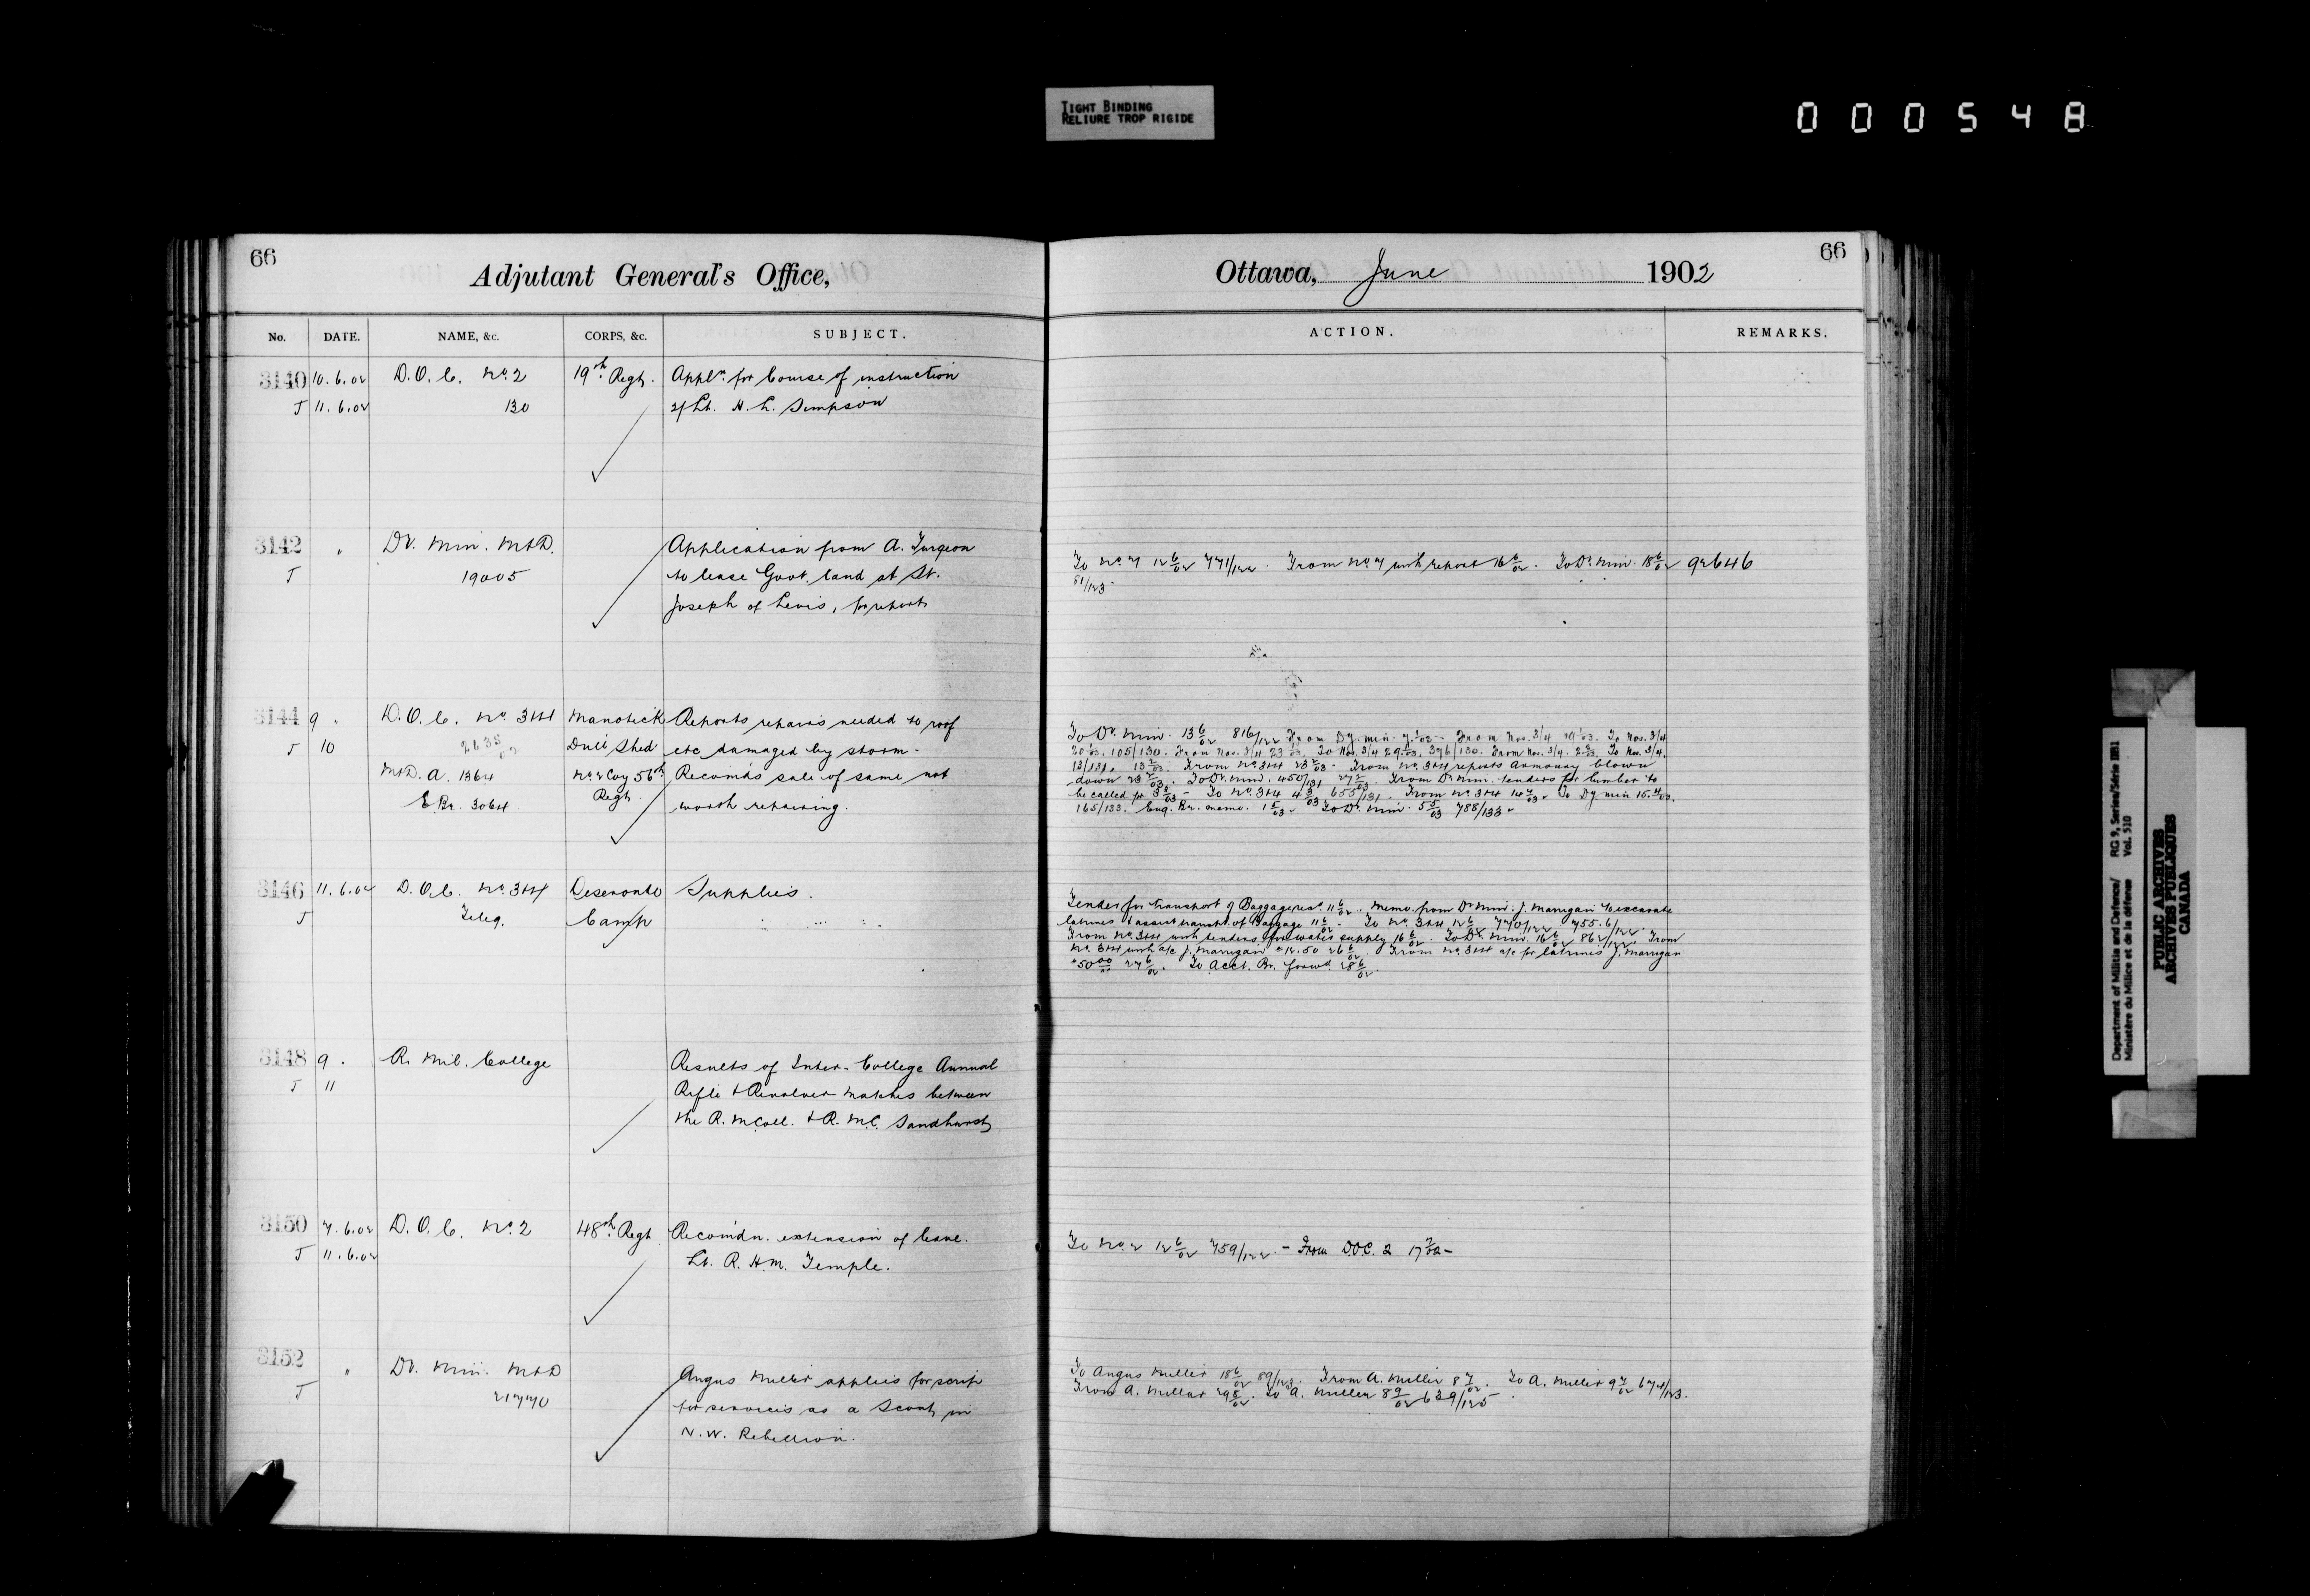 TIGHT BINDING
RELIURE TROP RIGIDE
000548
66
Adjutant General's Office,
No. DATE. NAME, &c. CORPS, &c. SUBJECT.
3140 10.6.02 D.O.C. No. 2 19th Regt. Appln. for Course of instruction
J 11.6.02 130 2/Lt. H. L. Simpson
3142 " Dy. Min. M&D. Application from A. Turgeon
J 19005 to lease Govt. land at St.
Joseph of Levis, for report
3144 9 " D.O.C. No. 3&4 Manotick Reports repairs needed to roof
J 10 2635/02 Drill Shed etc damaged by storm.
M&D. A. 1364 No. 2 Coy 56th Recomds sale of same not
E.Br. 3064 Regt. worth repairing.
3146 11.6.02 D.O.C. No. 3&4 Deseronto Supplies.
J Teleg. Camp
3148 9 " R. Mil. College Results of Inter-College Annual
J 11 Rifle & Revolver matches between
the R.M.Coll. & R.M.C. Sandhurst
3150 7.6.02 D.O.C. No. 2 48th Regt Recomdn. extension of leave.
J 11.6.02 Lt. R. H. M. Temple.
3152 " Dy. Min. M&D Angus Miller applies for scrip
J 21770 for services as a Scout in
N.W. Rebellion.
66
Ottawa, June 1902
ACTION. REMARKS.
To No. 7 12 6/02 771/122. From No. 7 with report 16 6/02. To Dy. Min. 18 6/02 92646
81/123.
To Dy. Min. 13 6/02 816/122 From Dy. Min. 7.1/03 - From Nos. 3/4 19 1/03. To Nos. 3/4
20 1/03. 105/130. From Nos. 3/4 23 1/03. To Nos. 3/4 29 1/03. 376/130. From Nos. 3/4. 2 2/03. To Nos. 3/4.
13/131. 13 2/03. From No. 3&4 23 2/03 - From No. 3&4 reports Armoury blown
down 23 2/03. To Dy. Min. 450/131 27 2/03. From Dy. Min. tenders for lumber to
be called for 3 3/03 - To No. 3&4 4 3/03 655/131. From No. 3&4 14 4/03 - To Dy. Min 15.4/03.
165/133. Eng. Br. memo. 1 5/03 - To Dy. Min. 5 5/03 788/133 -
Tender for transport of Baggage recd. 11 6/02. Memo. from Dy Min: J. Marrigan to excavate
latrines & assist transpt. of Baggage 11 6/02. To No. 3&4 12 6/02 770/122 755.6/122.
From No. 3&4 with tenders for water supply 16 6/02. To Dy. Min. 16 6/02 862/122. From
No. 3&4 with a/c J. Marrigan $12.50 26 6/02. From No. 3&4 a/c for latrines J. Marrigan
$50.00 27 6/02. To Acct. Br. forwd. 28 6/02.
To No. 2 12 6/02 759/122 - From D.O.C. 2 17 7/02 -
To Angus Miller 18 6/02 89/123. From A. Miller 8 7/02. To A. Miller 9 7/02 674/123.
From A. Miller 29 8/02. To A. Miller 8 9/02 639/125
Department of Militia and Defence/ RG 9, Series/Série IIB1
Ministère du Milice et de la défense Vol. 510
PUBLIC ARCHIVES
ARCHIVES PUBLIQUES
CANADA